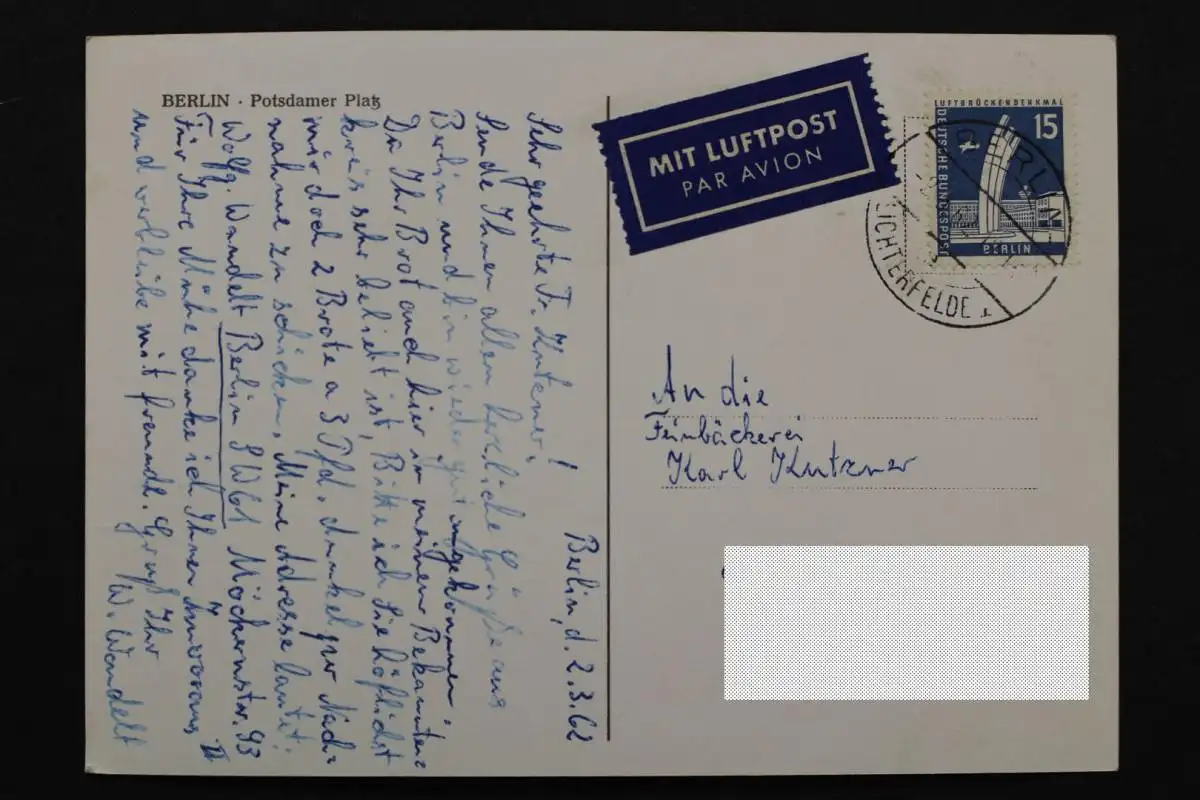 BERLIN · Potsdamer Platz
Berlin, d. 2.3.62
Sehr geehrte Fr. Kutzner!
Sende Ihnen allen herzliche Grüße aus
Berlin und bin wieder gut angekommen.
Da Ihr Brot auch hier in meinem Bekannten=
kreis sehr beliebt ist, Bitte ich Sie höflichst
mir doch 2 Brote a 3 Pfd. dunkel per Nach=
nahme zu schicken. Meine Adresse lautet:
Wolfg. Wandelt Berlin SW61 Möckernstr. 93 II
Für Ihre Mühe danke ich Ihnen im voraus
und verbleibe mit freundl. Gruß Ihr
W. Wandelt
MIT LUFTPOST
PAR AVION
LUFTBRÜCKENDENKMAL
DEUTSCHE BUNDESPOST
15
BERLIN
BERLIN
LICHTERFELDE
An die
Feinbäckerei
Karl Kutzner